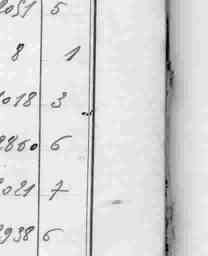 2051 5
8 1
1018 3
2860 6
2021 7
2938 6